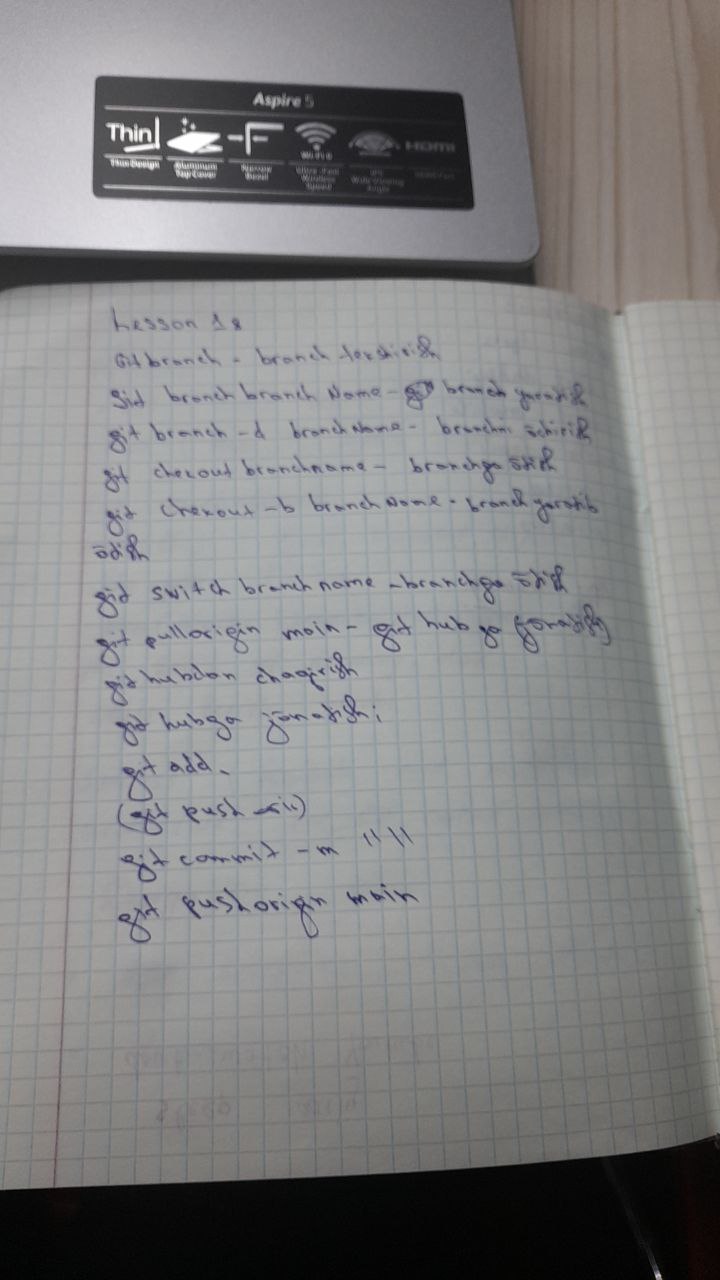 Aspire 5
Thin
HDMI
Thin Design
Aluminum Top Cover
Narrow Bezel
Wi-Fi 6
Ultra-Fast Wireless Speed
IPS
Wide Viewing Angle
Lesson 18
Git branch - branch tekshirish
git branch branch Name - branch yaratish
git branch -d branchName - branchni ōchirish
git chexout branchname - branchga ōtish
git chexout -b branchName - branch yaratib
ōtish
git switch branchname - branchga ōtish
git pullorigin main - git hub ga jōnatish
git hubdan chaqirish
git hubga jōnatish;
git add.
(git push
git commit -m " "
git pushorigin main